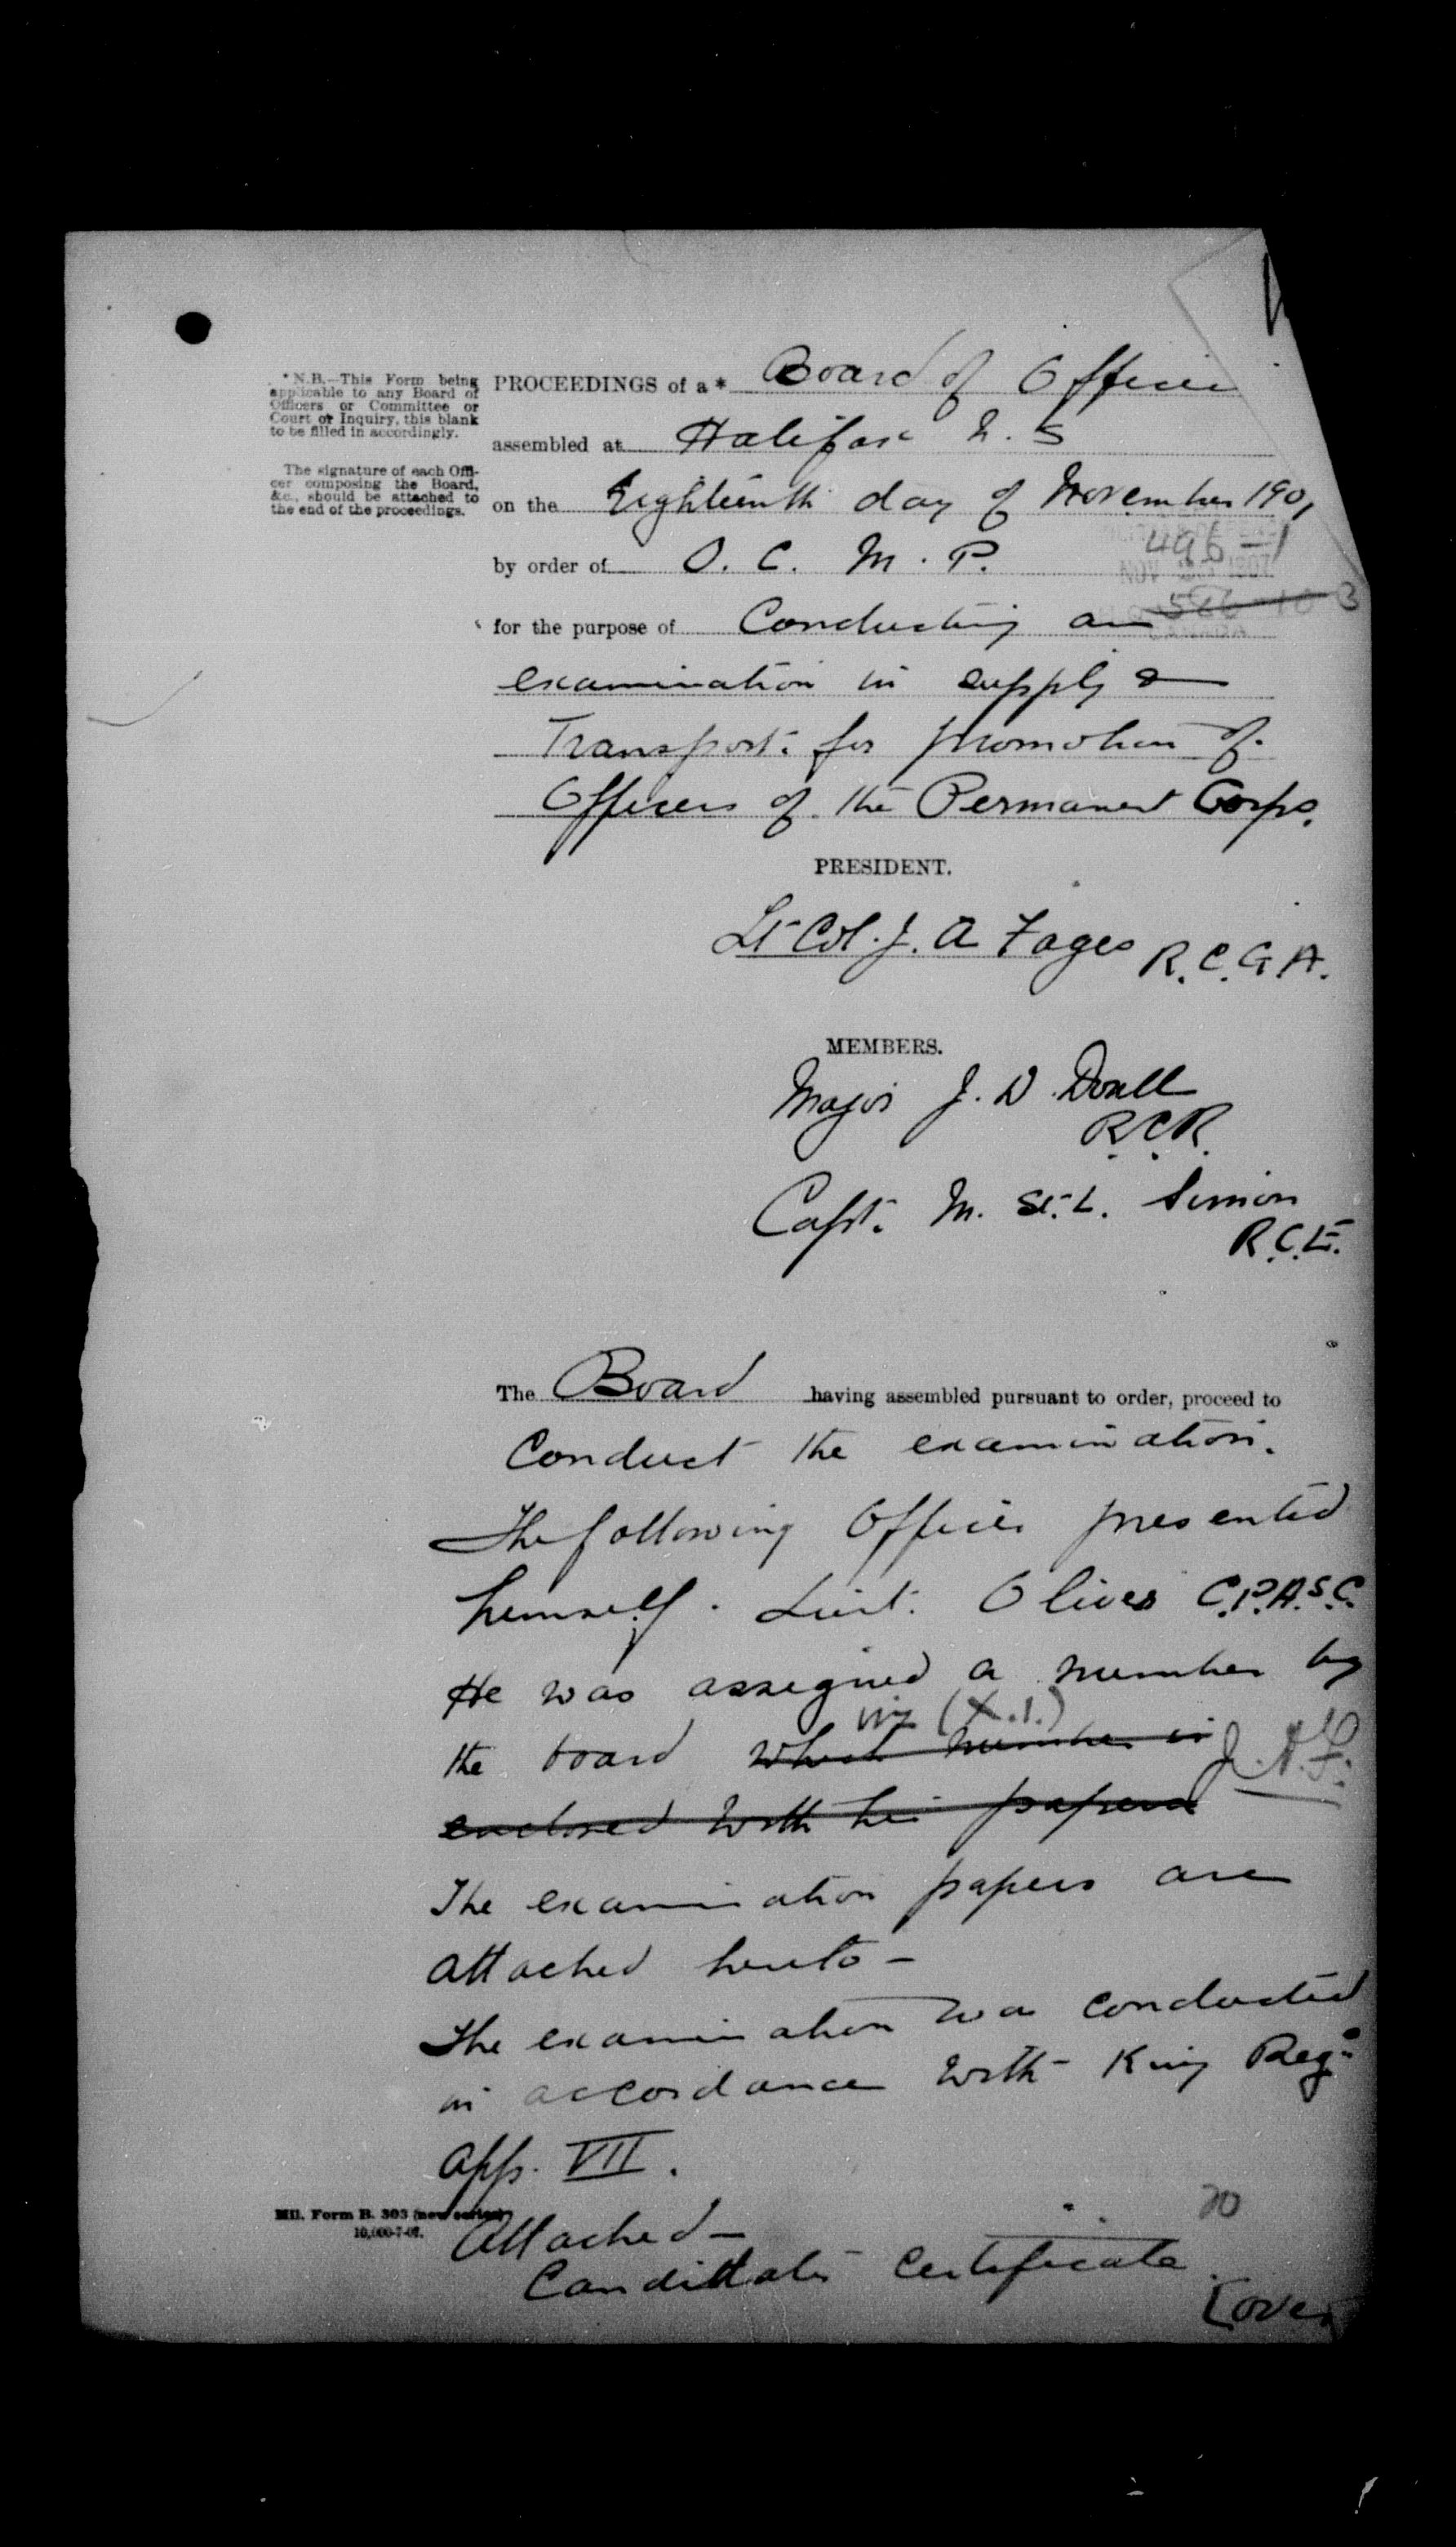 *N.B.—This Form being
applicable to any Board of
Officers or Committee or
Court or Inquiry, this blank
to be filled in accordingly.
The signature of each Offi-
cer composing the Board,
&c., should be attached to
the end of the proceedings.
PROCEEDINGS of a* Board of Officers
assembled at Halifax N. S
on the Eighteenth day of November 190
496-1
by order of O. C. M. P.
for the purpose of Conducting an
examination in supply &
Transport. for promotion of
Officers of the Permanent Corps.
PRESIDENT.
Lt Col. J. A Fages R.C.G.A.
MEMBERS.
Major J. D. Doull
R.C.R.
Capt. M. St. L. Simon
R.C.E.
The Board having assembled pursuant to order, proceed to
Conduct the examination.
The following Officer presented
himself. Lieut. Olives C.P.A.S.C.
He was assigned a number by
viz (X.1.)
the board which number is J.A.F.
enclosed with his papers
The examination papers are
attached hereto -
The examination was conducted
in accordance with King Reg.
App. VII.
Mil. Form B. 303 (new series)
10,000-7-07.
20
Attached -
Candidates Certificate
[over